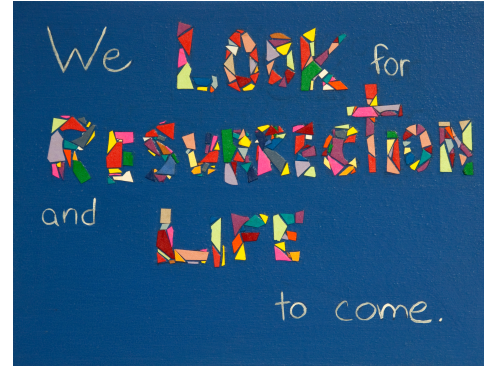 We LOOK for
RESURRECTION
and LIFE
to come.